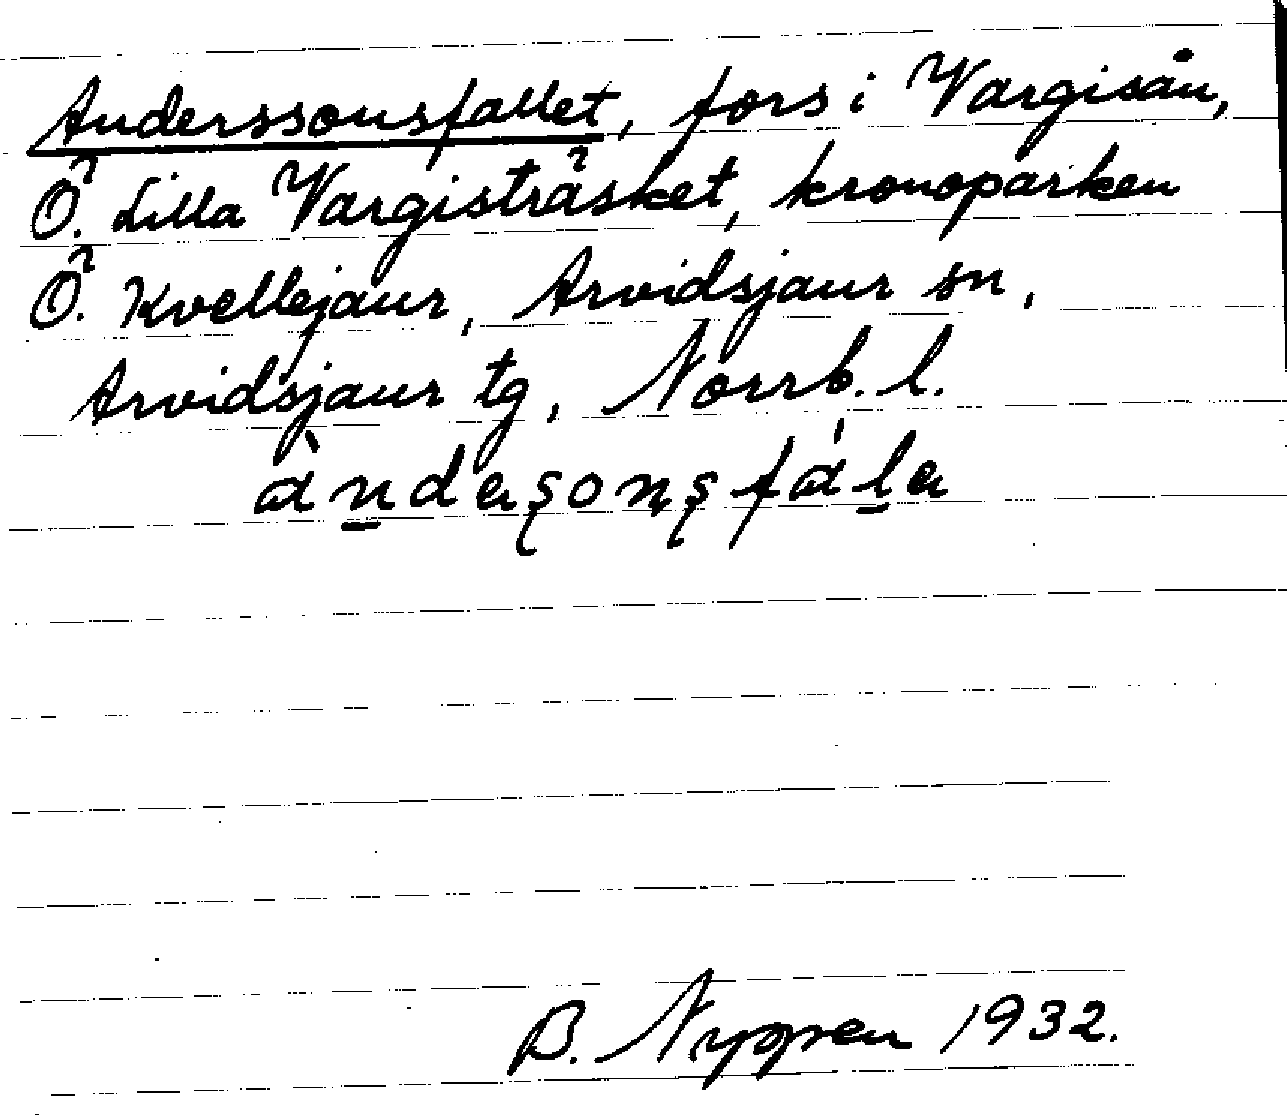 Anderssonsfallet, fors i Vargisån,
Ö. Lilla Vargisträsket, kronoparken
Ö. Kvellejaur, Arvidsjaur sn,
Arvidsjaur tg, Norrb. l.
B. Nyppen 1932.